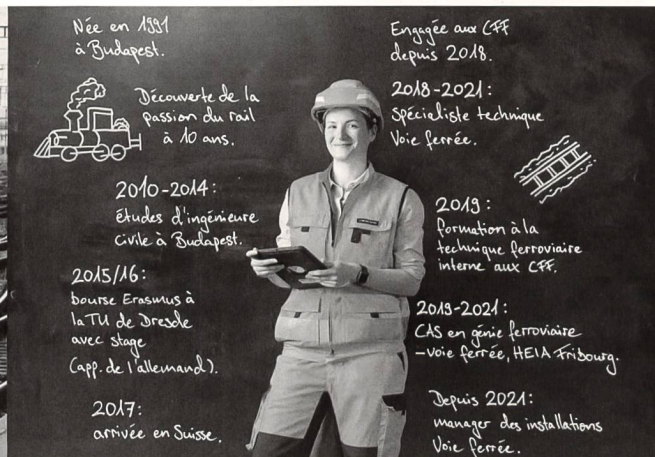 Née en 1991
à Budapest.
Découverte de la
passion du rail
à 10 ans.
2010-2014:
études d'ingénieure
civile à Budapest.
2015/16:
bourse Erasmus à
la TU de Dresde
avec stage
(app. de l'allemand).
2017:
arrivée en Suisse.
Engagée aux CFF
depuis 2018.
2018-2021:
Spécialiste technique
Voie ferrée.
2019:
formation à la
technique ferroviaire
interne aux CFF.
2019-2021:
CAS en génie ferroviaire
-voie ferrée, HEIA Fribourg.
Depuis 2021:
manager des installations
Voie ferrée.